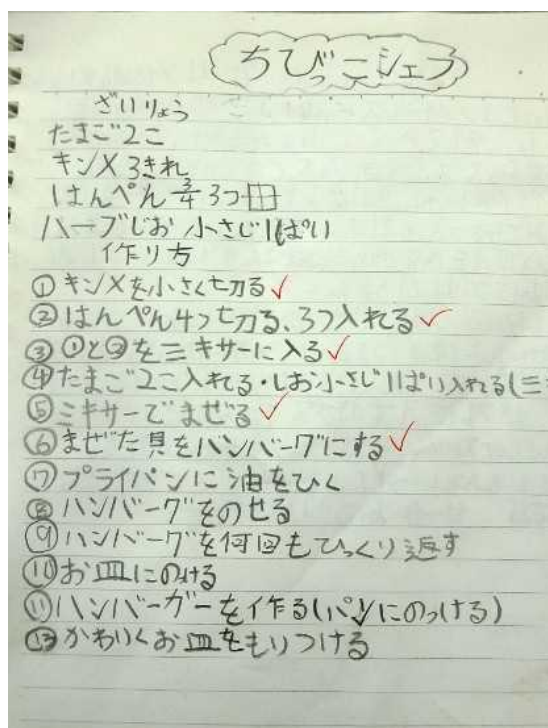 ちびっこシェフ
ざいりょう
たまご2こ
キンメ3きれ
はんぺん 3/4 3つ
ハーブじお 小さじ1ぱい
作り方
① キンメを小さく切る ✓
② はんぺん4つ切る、3つ入れる ✓
③ ①と②をミキサーに入る ✓
④ たまご2こ入れる・しお小さじ1ぱい入れる(ミ
⑤ ミキサーでまぜる ✓
⑥ まぜた具をハンバーグにする ✓
⑦ プライパンに油をひく
⑧ ハンバーグをのせる
⑨ ハンバーグを何回もひっくり返す
⑩ お皿にのける
⑪ ハンバーガーを作る(パンにのっける)
⑫ かわいくお皿をもりつける